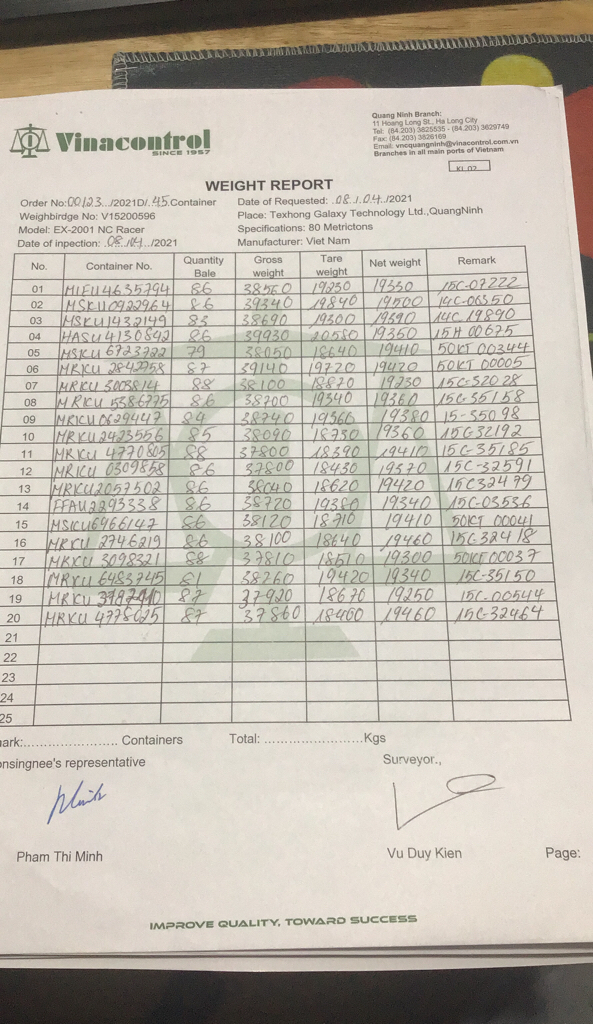 Vinacontrol
SINCE 1957
Quang Ninh Branch:
11 Hoang Long St., Ha Long City
Tel: (84.203) 3825535 - (84.203) 3629749
Fax: (84.203) 3826169
Email: vncquangninh@vinacontrol.com.vn
Branches in all main ports of Vietnam
WEIGHT REPORT
Order No:00123../2021D/.45.Container Date of Requested: .08./.04../2021
Weighbirdge No: V15200596 Place: Texhong Galaxy Technology Ltd.,QuangNinh
Model: EX-2001 NC Racer Specifications: 80 Metrictons
Date of inpection: .08./04../2021 Manufacturer: Viet Nam
No. Container No. Quantity Bale Gross weight Tare weight Net weight Remark
01 86 38560 19230 19330 15C-07222
02 MSKU0922964 86 39340 19840 19500 14C-06350
03 MSKU1432149 83 38690 19300 19390 14C 19890
04 HASU4130842 86 39930 20580 19350 15H 00675
05 MSKU 6723722 79 38050 18640 19410 50KT 00344
06 MRKU 2842758 87 39140 19720 19420 50KT 00005
07 MRKU 3003814 88 38100 18870 19230 15C-32028
08 MRKU 5386775 86 38700 19340 19360 15C-35158
09 MRKU 0629447 84 38740 19360 19380 15-35098
10 MRKU 2423556 85 38090 18730 19360 15C-32192
11 MRKU 4770805 88 37800 18390 19410 15C-35185
12 MRKU 0309858 86 37800 18430 19370 15C-32591
13 MRKU2057502 86 38040 18620 19420 15C32479
14 FFAU2293338 86 38720 19380 19340 15C-03536
15 MSKU6966147 86 38120 18710 19410 50KT 00041
16 MRKU 2746219 86 38100 18640 19460 15C-32418
17 MRKU 3098321 88 37810 18510 19300 50KT00037
18 MRKU 6483745 81 38760 19420 19340 15C-35150
19 MRKU 87 37920 18670 19250 15C-00544
20 MRKU 4778625 87 37860 18400 19460 15C-32464
21
22
23
24
25
ark:........................ Containers Total: .........................Kgs
onsingnee's representative Surveyor.,
Pham Thi Minh Vu Duy Kien Page:
IMPROVE QUALITY, TOWARD SUCCESS